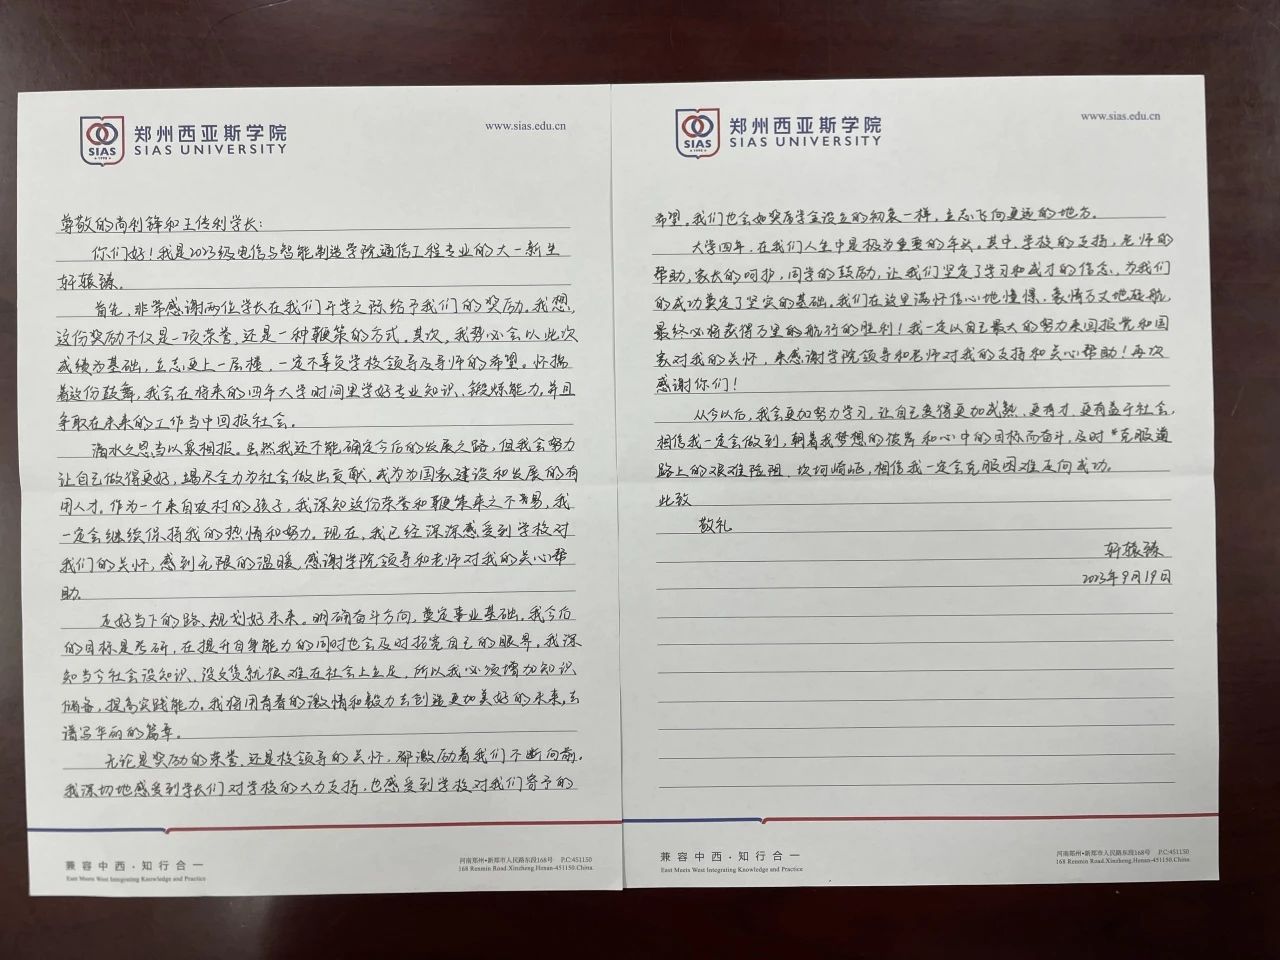 郑州西亚斯学院
SIAS UNIVERSITY
SIAS
1998
www.sias.edu.cn
尊敬的尚利锋和王传利学长:
你们好!我是2023级电信与智能制造学院通信工程专业的大一新生
轩辕臻。
首先,非常感谢两位学长在我们开学之际给予我们的奖励。我想,
这份奖励不仅是一项荣誉,还是一种鞭策的方式。其次,我势必会以此次
成绩为基础,立志更上一层楼,一定不辜负学校领导及导师的希望。怀揣
着这份鼓舞,我会在将来的四年大学时间里学好专业知识、锻炼能力,并且
争取在未来的工作当中回报社会。
滴水之恩当以泉相报。虽然我还不能确定今后的发展之路,但我会努力
让自己做得更好,竭尽全力为社会做出贡献,成为为国家建设和发展的有
用人才。作为一个来自农村的孩子,我深知这份荣誉和鞭策来之不易,我
一定会继续保持我的热情和努力。现在,我已经深深感受到学校对
我们的关怀,感到无限的温暖,感谢学院领导和老师对我的关心帮
助。
走好当下的路、规划好未来。明确奋斗方向,奠定事业基础。我今后
的目标是考研,在提升自身能力的同时也会及时拓宽自己的眼界。我深
知当今社会没知识、没文凭就很难在社会上立足,所以我必须增加知识
储备,提高实践能力。我将用青春的激情和毅力去创造更加美好的未来,去
谱写华丽的篇章。
无论是奖励的荣誉、还是校领导的关怀,都激励着我们不断向前。
我深切地感受到学长们对学校的大力支持,也感受到学校对我们寄予的
兼容中西·知行合一
East Meets West Integrating Knowledge and Practice
河南郑州·新郑市人民路东段168号 P.C:451150
168 Renmin Road.Xinzheng.Henan-451150.China
郑州西亚斯学院
SIAS UNIVERSITY
SIAS
1998
www.sias.edu.cn
希望。我们也会如奖学金设立的初衷一样,立志飞向更远的地方。
大学四年,在我们人生中是极为重要的年头。其中,学校的支持,老师的
帮助,家长的呵护,同学的鼓励,让我们坚定了学习和成才的信念,为我们
的成功奠定了坚实的基础。我们在这里满怀信心地憧憬、豪情万丈地启航,
最终必将获得万里的航行的胜利!我一定以自己最大的努力来回报党和国
家对我的关怀,来感谢学院领导和老师对我的支持和关心帮助!再次
感谢你们!
从今以后,我会更加努力学习,让自己变得更加成熟、更有才、更有益于社会,
相信我一定会做到,朝着我梦想的彼岸和心中的目标而奋斗,及时“克服道
路上的艰难险阻、坎坷崎岖,相信我一定会克服困难走向成功。
此致
敬礼
轩辕臻
2023年9月19日
兼容中西·知行合一
East Meets West Integrating Knowledge and Practice
河南郑州·新郑市人民路东段168号 P.C:451150
168 Renmin Road.Xinzheng.Henan-451150.China